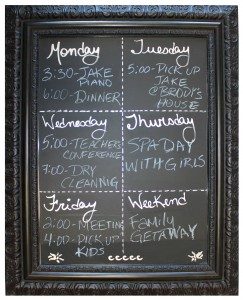 Monday
3:30-JAKE
PIANO
6:00-DINNER
Tuesday
5:00-PICK UP
JAKE
@BRODY'S
HOUSE
Wednesday
5:00-TEACHERS
CONFERENCE
7:00-DRY
CLEANNIG
Thursday
SPA-DAY
WITH GIRLS
Friday
2:00-MEETING
4:00-PICK UP
KIDS
Weekend
Family
GETAWAY